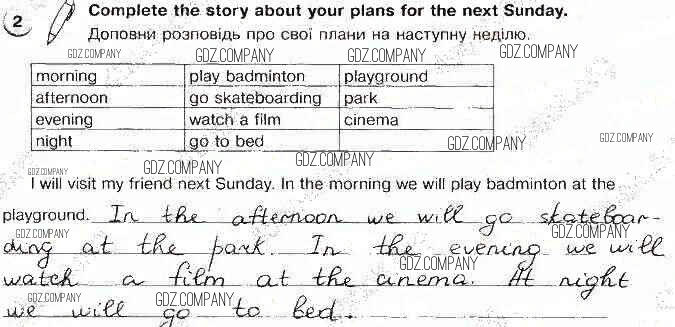 2 Complete the story about your plans for the next Sunday.
Доповни розповідь про свої плани на наступну неділю.
GDZ.COMPANY GDZ.COMPANY GDZ.COMPANY
morning play badminton playground
afternoon go skateboarding park
evening watch a film cinema
night go to bed
GDZ.COMPANY GDZ.COMPANY
GDZ.COMPANY GDZ.COMPANY
I will visit my friend next Sunday. In the morning we will play badminton at the
playground. In the afternoon we will go skateboar-
GDZ.COMPANY GDZ.COMPANY
ding at the park. In the evening we will
GDZ.COMPANY
watch a film at the cinema. At night
GDZ.COMPANY GDZ.COMPANY
we will go to bed.